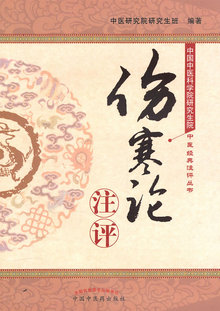 中医研究院研究生班 编著
中国中医科学院研究生院
中医经典注评丛书
伤寒论
注评
中国中医药出版社